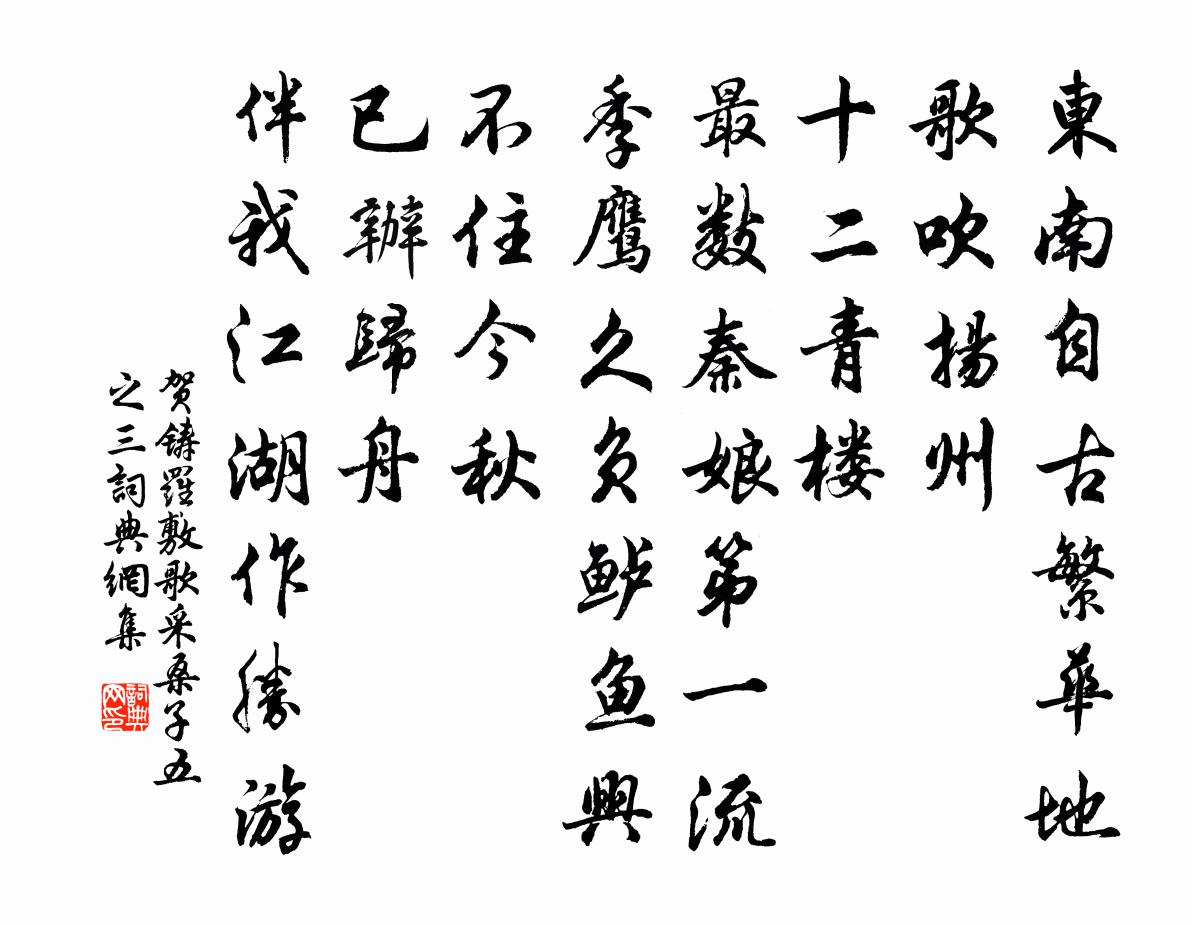 東南自古繁華地
歌吹揚州
十二青楼
最数秦娘第一流
季鹰久负鲈鱼興
不住今秋
已辦歸舟
伴我江湖作勝游
贺鋳羅敷歌采桑子五
之三詞典網集
詞典
网印